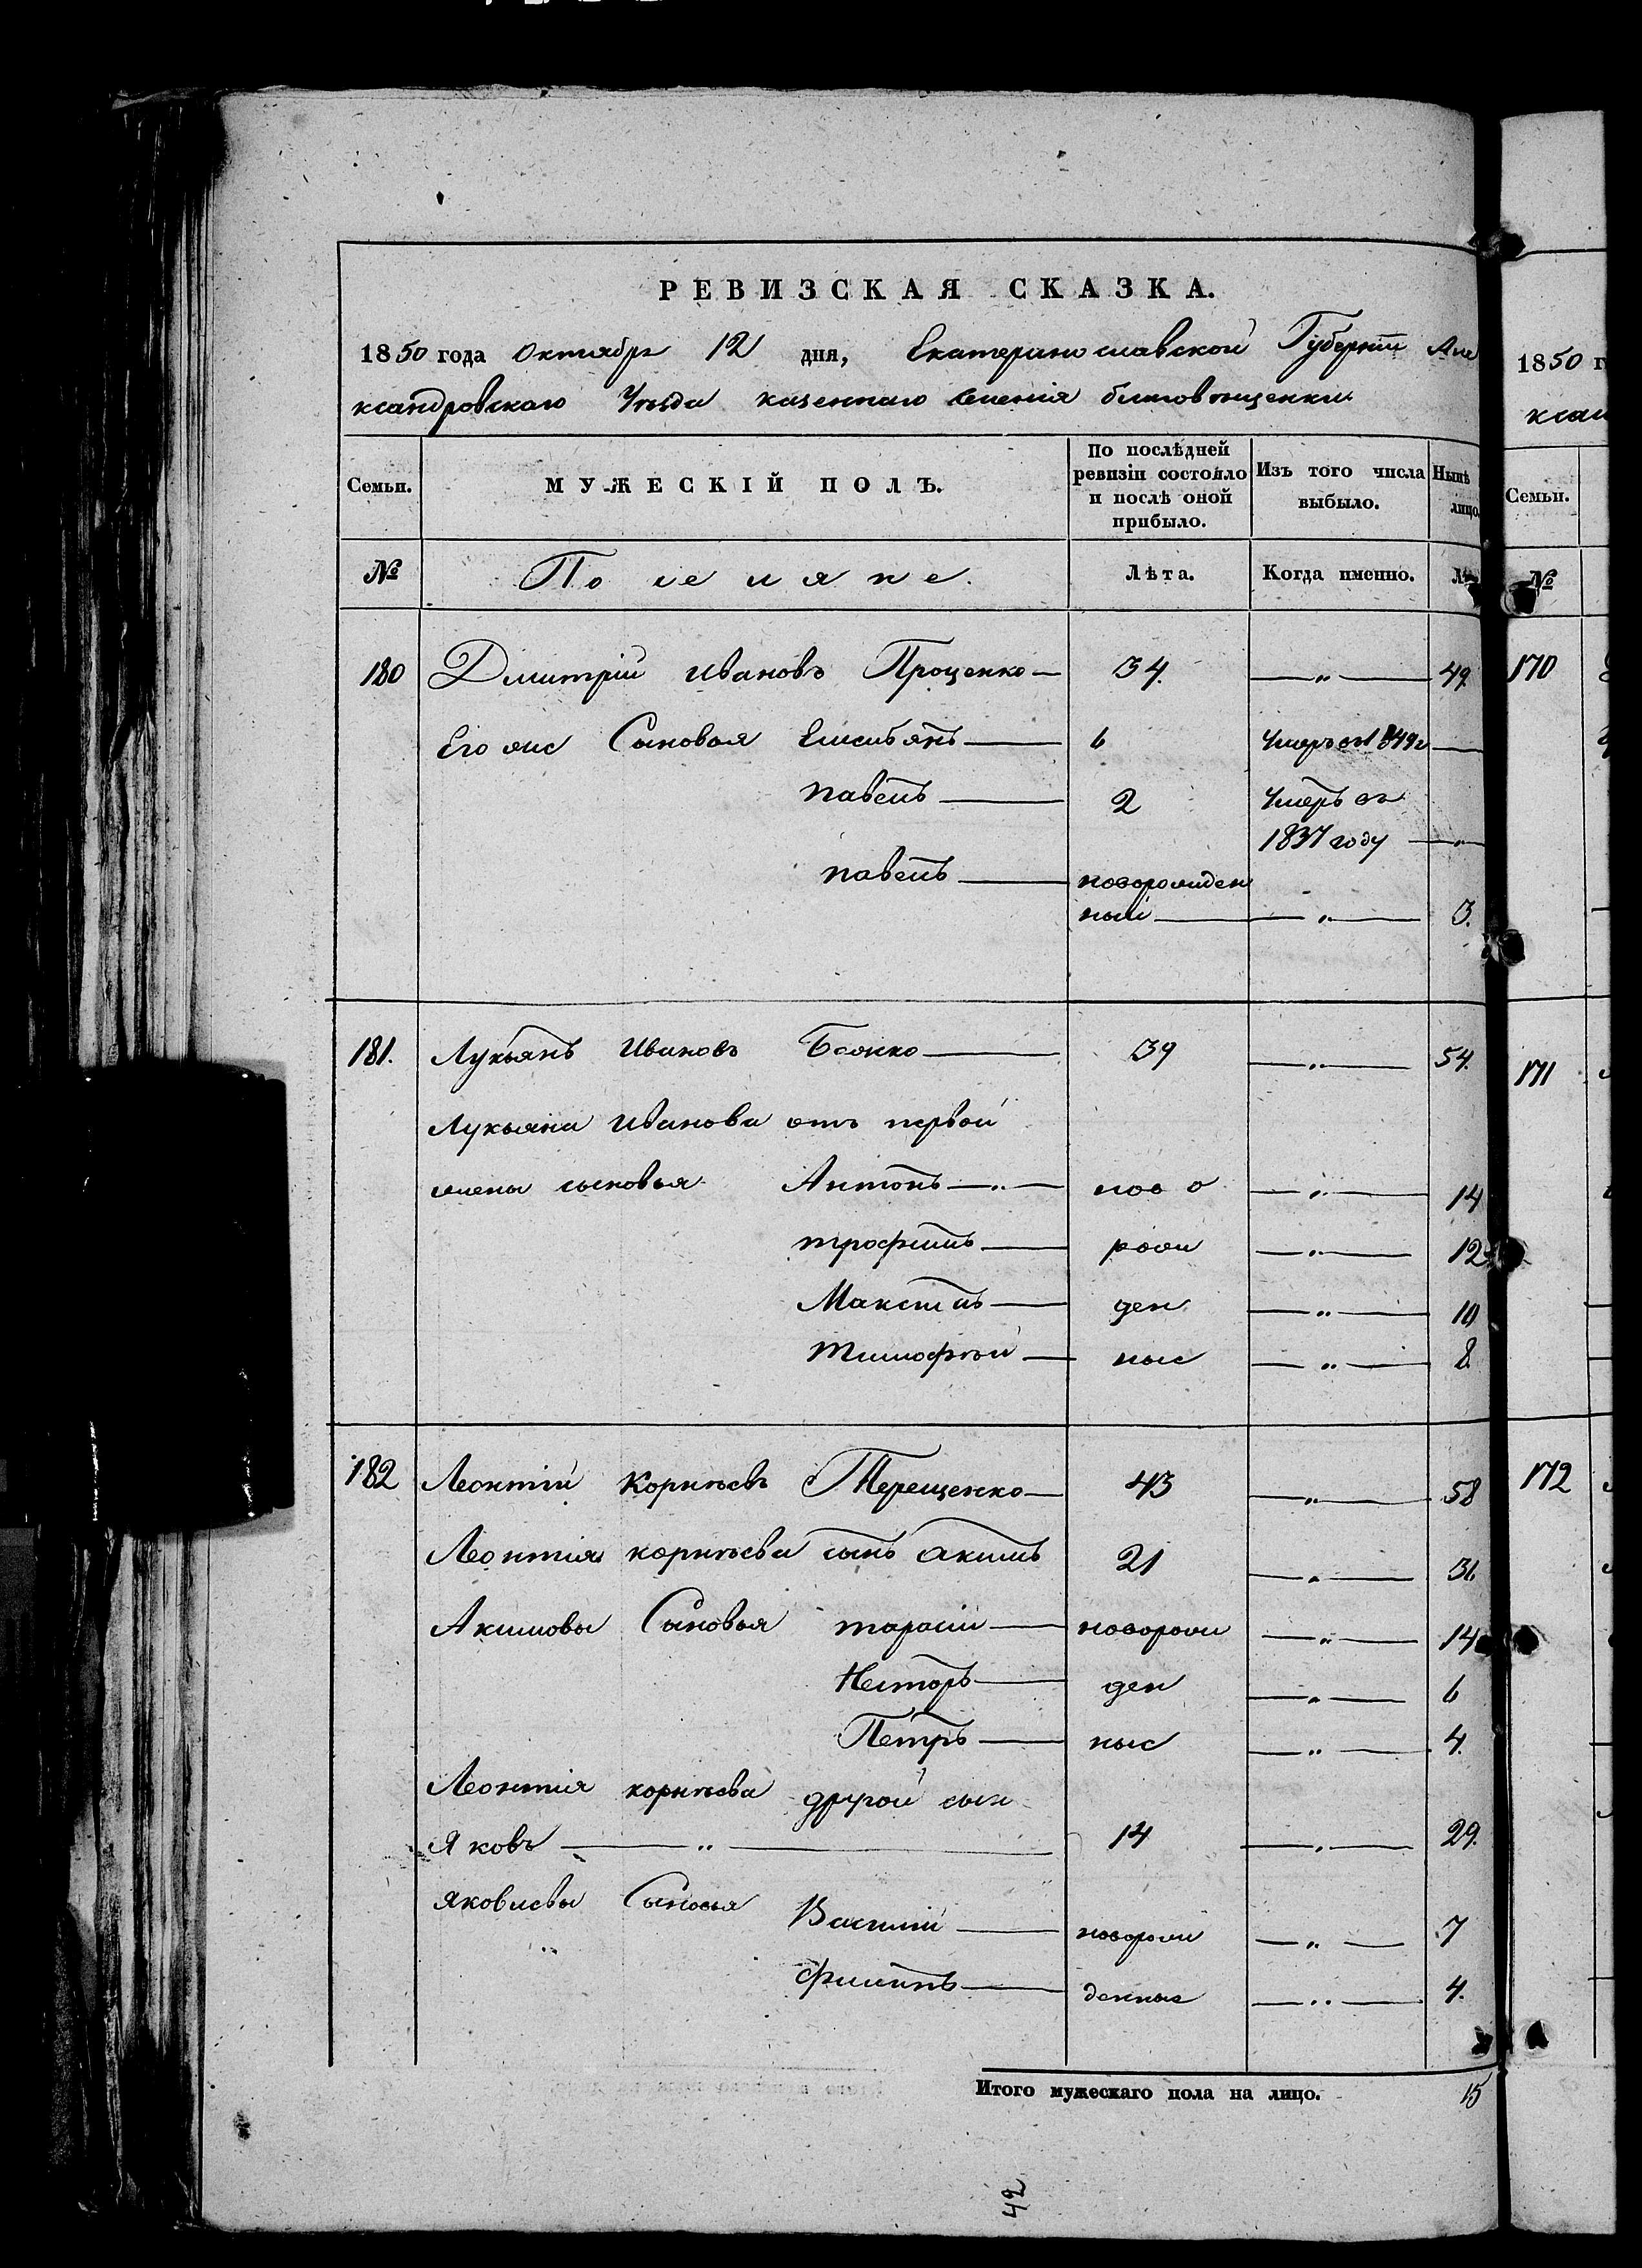 РЕВИЗСКАЯ СКАЗКА.
1850 года Октября 12 дня, Екатеринославской Губерніи Але
ксандровскаго Уезда казеннаго Селенія
Семьи. МУЖЕСКІЙ ПОЛЪ. По послѣдней ревизіи состояло и послѣ оной прибыло. Изъ того числа выбыло. Нынѣ лицо.
№ Поселяне. Лѣта. Когда именно.
180 Дмитрій Ивановъ Проценко — 34. — „ — 49.
Его же Сыновья Емельянъ — 6 Умеръ въ 1849 г —
Павелъ — 2 Умеръ въ
1837 году — „ —
Павелъ — новорожден
ный — „ — 3.
181. Лукьянъ Ивановъ — 39 — „ — 54.
Лукьяна Иванова отъ первой
жены сыновья Антонъ — „ — ново — „ — 14
Трофимъ — рож — „ — 12
Максимъ — ден — „ — 10
Тимофѣй — ные — „ — 8.
182 Леонтій Корнѣевъ Терещенко — 43 — „ — 58
Леонтія Корнѣева сынъ Акимъ 21 — „ — 36
Акимовы Сыновья Тарасій — новорож — „ — 14
Несторъ — ден — „ — 6
Петръ — ные — „ — 4.
Леонтія Корнѣева другой сын
Яковъ — „ — 14 — „ — 29.
Яковлевы Сыновья Василій — новорож — „ — 7
„ Филипъ — денные — „ — 4.
Итого мужескаго пола на лицо. 15
42
1850 г
ксан
Семьи.
№
170
171
172